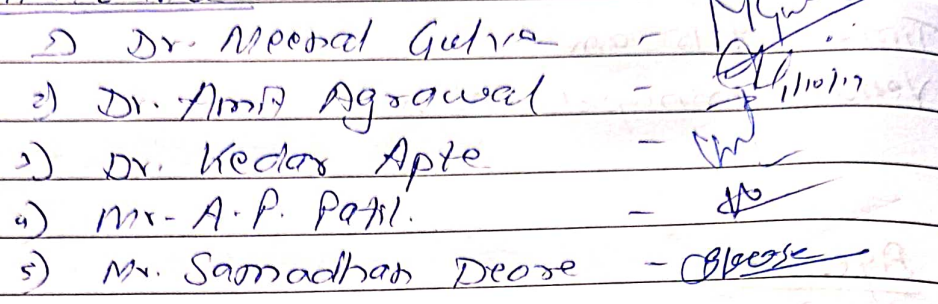 1) Dr. Meenal Gulve -
2) Dr. Amit Agrawal - 1/10/17
3) Dr. Kedar Apte -
4) Mr- A.P. Patil. -
5) Mr. Samadhan Deore - Deore